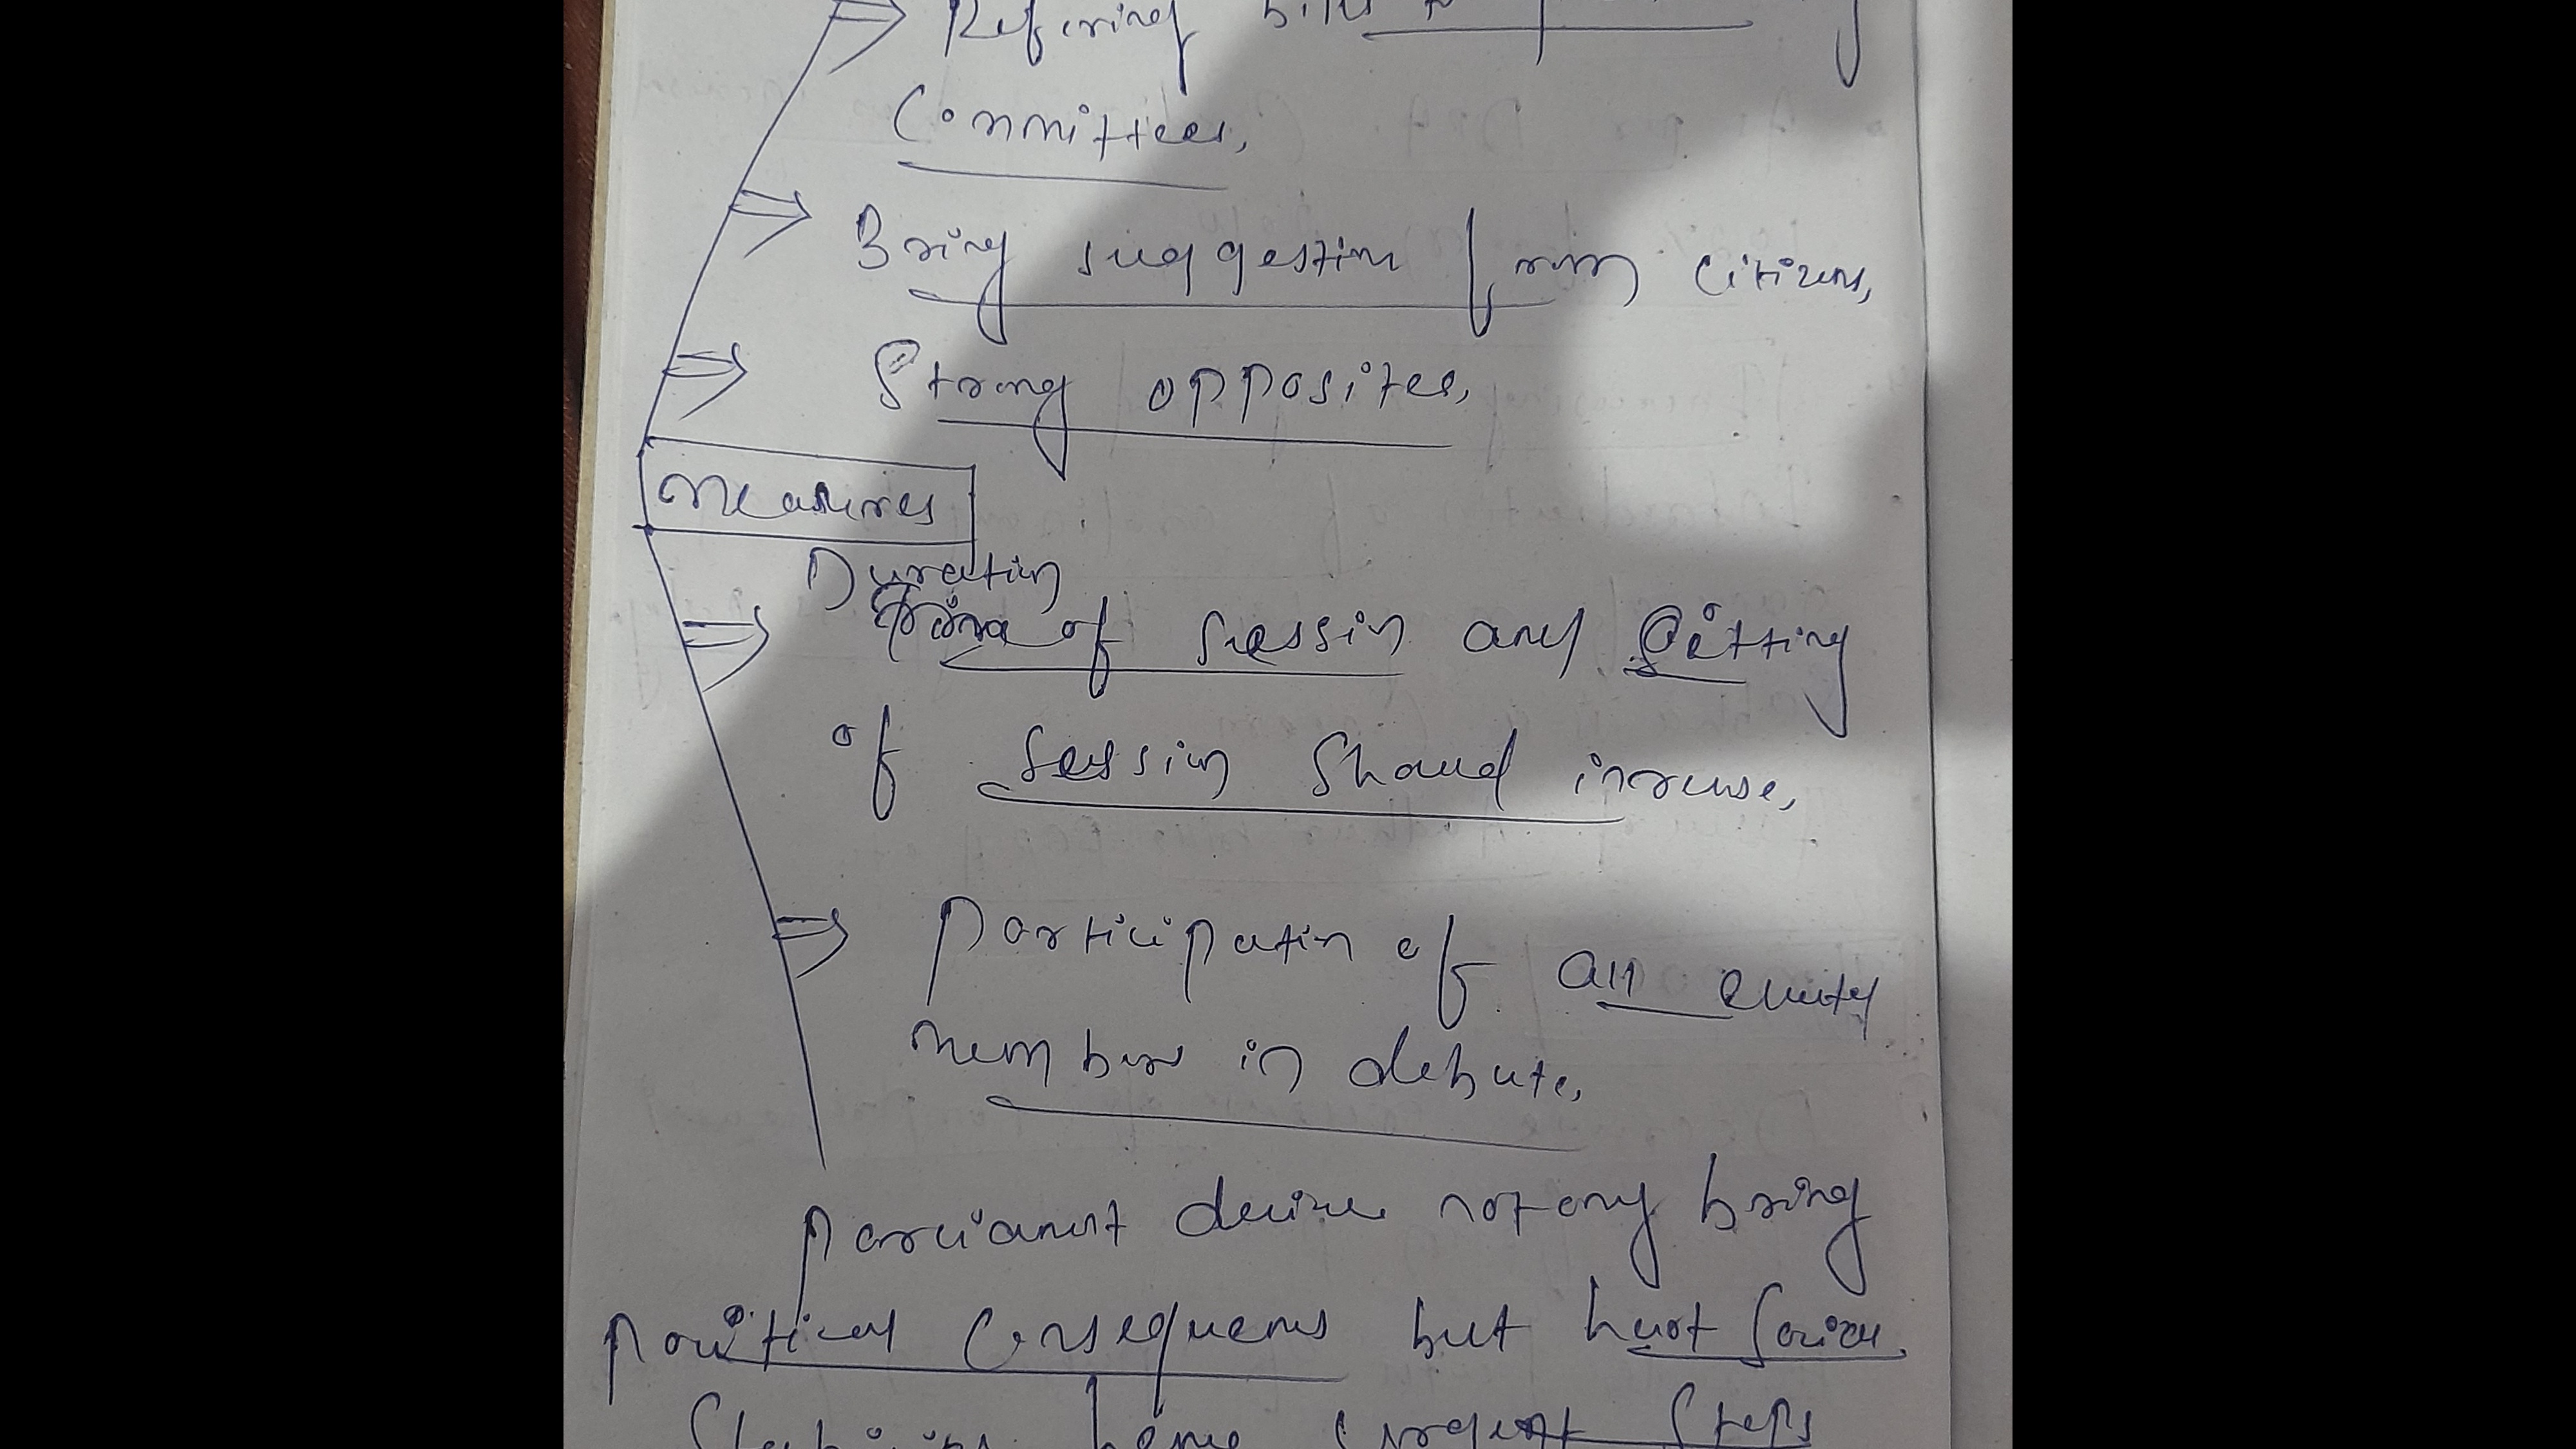 Refering bills to
Committees,
Bring suggestion from citizens,
Strong opposites,
Measures
Duration
of session and Sitting
of session should increase,
participation of all
members in debate,
parliament not only bring
political consequens but hurt social
hence urgent steps